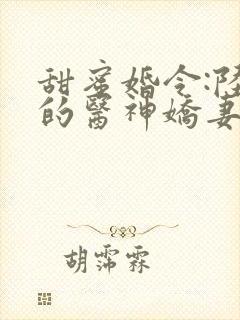 甜蜜婚令:陸
的醫神嬌妻
胡霈霖